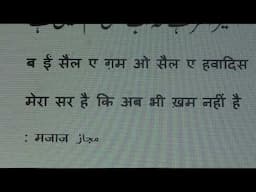 ब ई सैल ए ग़म ओ सैल ए हवादिस
मेरा सर है कि अब भी ख़म नहीं है
: मजाज़ مجاز